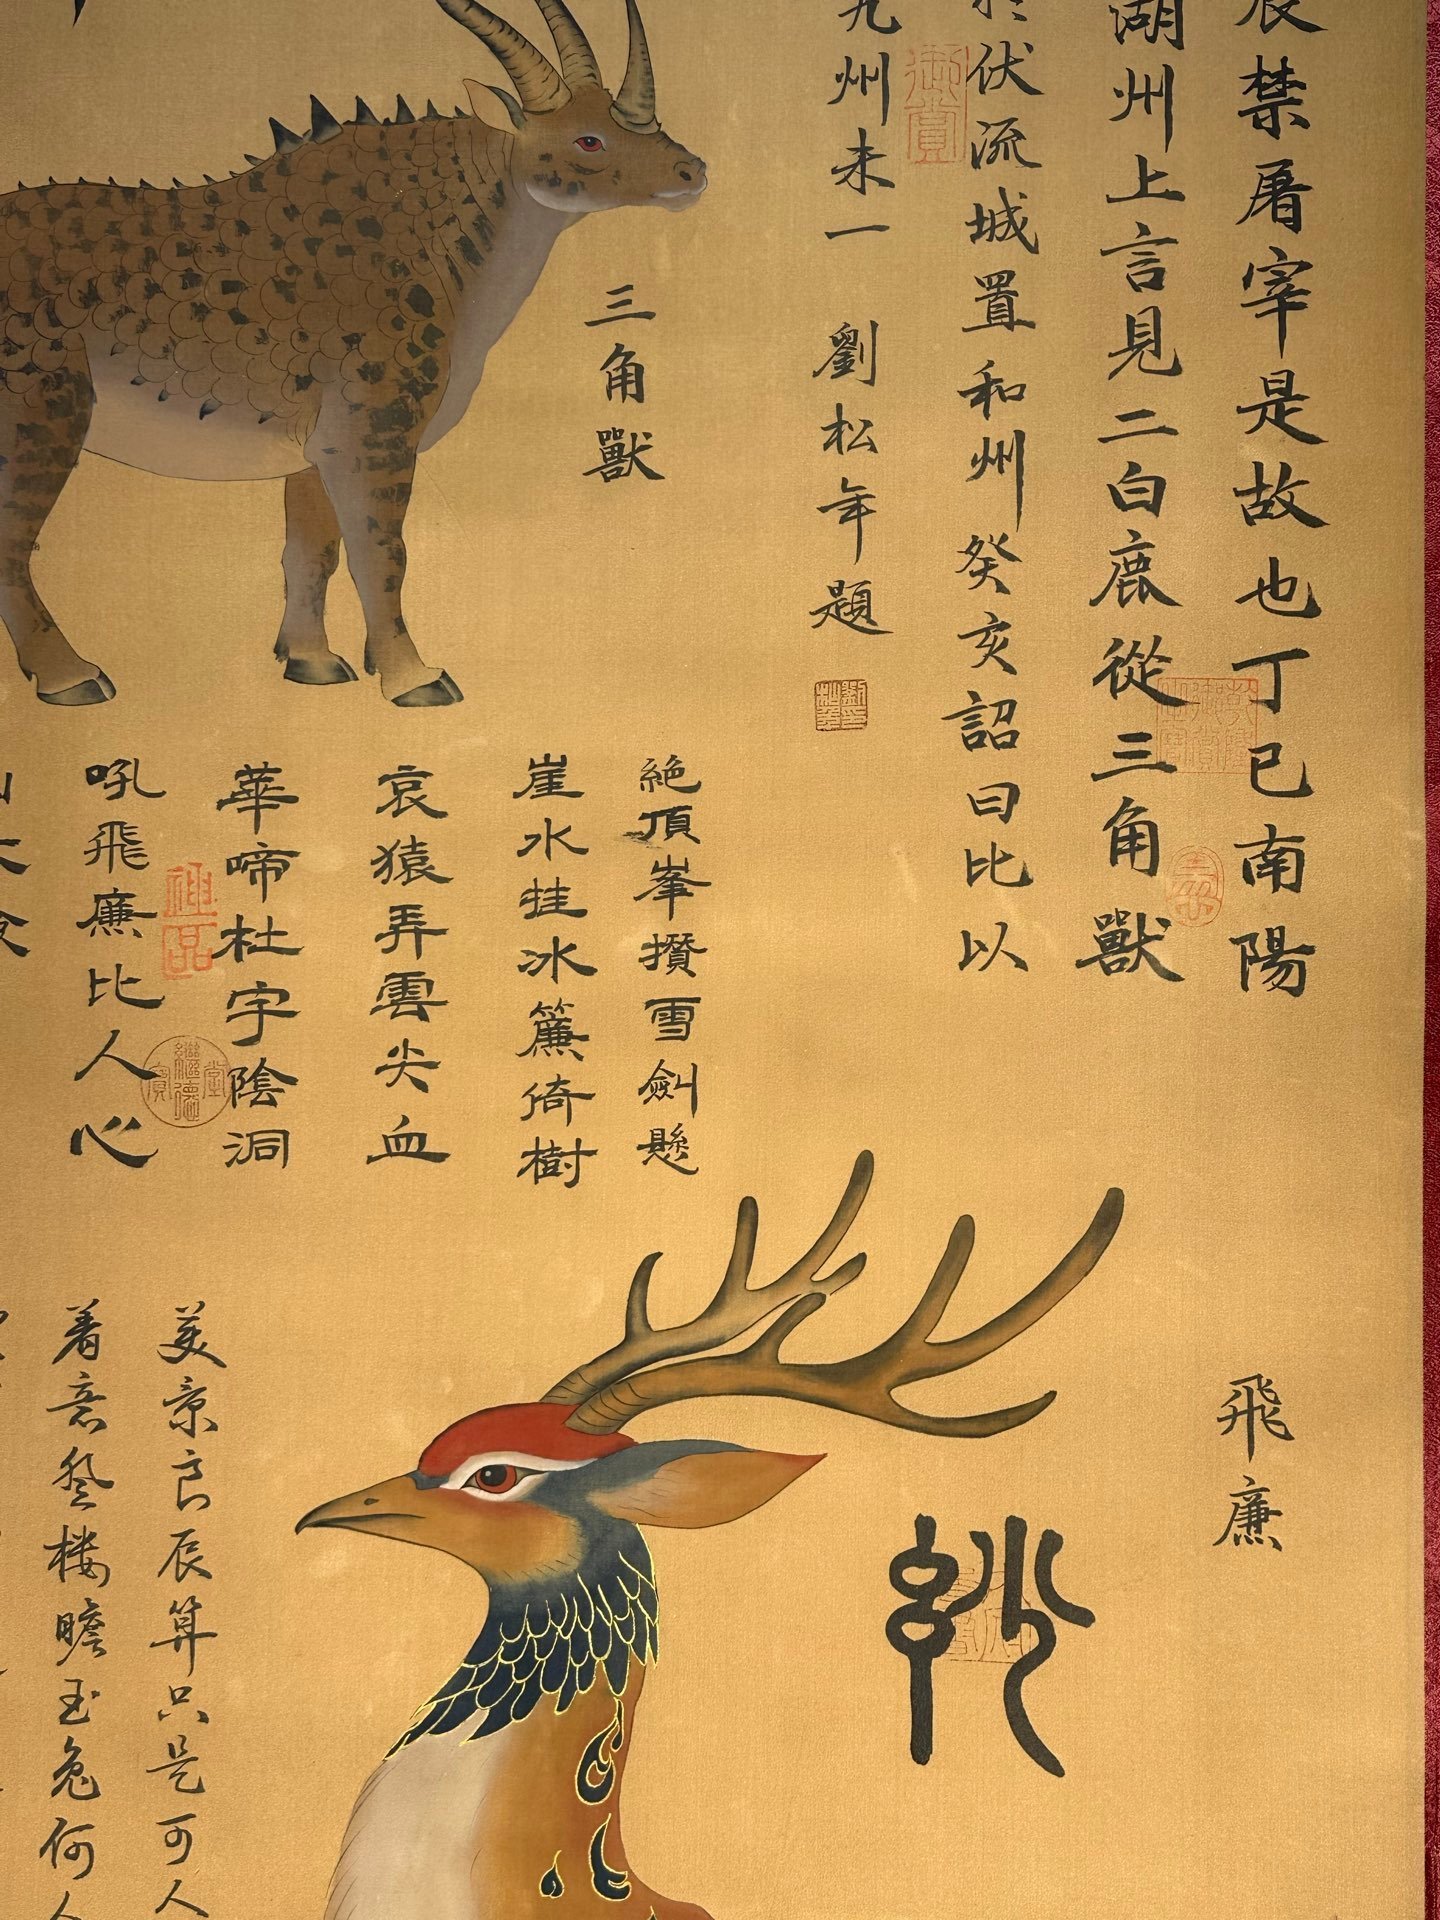 禁屠宰是故也丁巳南陽
湖州上言見二白鹿從三角獸
伏流城置和州癸亥詔曰比以
九州未一
劉松年題
三角獸
絕頂峯攢雪劍懸
崖水挂冰簾倚樹
哀猿弄雲尖血
華啼杜宇陰洞
吼飛廉比人心
飛廉
美景良辰算只是可人
着意登楼瞻玉兔何人
御賞
神品
繼德堂